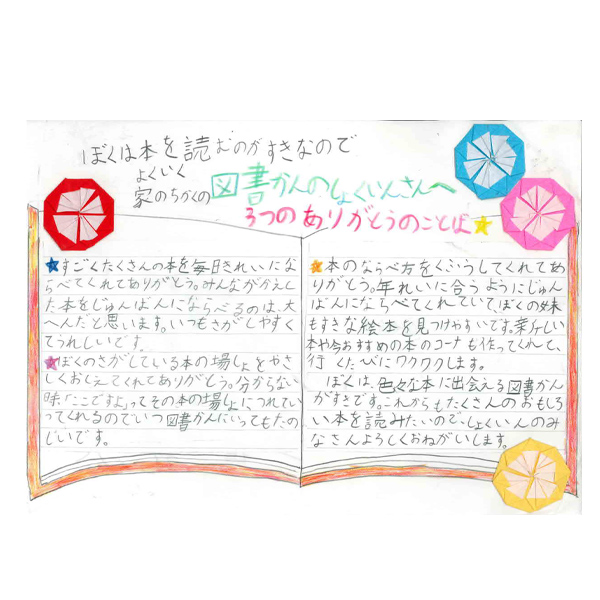 ぼくは本を読むのがすきなので
よくいく
家のちかくの図書かんのしょくいんさんへ
3つのありがとうのことば
すごくたくさんの本を毎日きれいにな
らべてくれてありがとう。みんながかえし
た本をじゅんばんにならべるのは、大
へんだと思います。いつもさがしやすく
てうれしいです。
ぼくのさがしている本の場しょをやさ
しくおしえてくれてありがとう。分からない
時、「ここですよ」ってその本の場しょにつれてい
ってくれるのでいつ図書かんにいってもたの
しいです。
本のならべ方をくふうしてくれてあ
りがとう。年れいに合うようにじゅん
ばんにならべてくれていて、ぼくの妹
もすきな絵本を見つけやすいです。新しい
本や今おすすめの本のコーナーも作ってくれて、
行くたびにワクワクします。
ぼくは、色々な本に出会える図書かん
がすきです。これからもたくさんのおもしろ
い本を読みたいので、しょくいんのみ
なさんよろしくおねがいします。